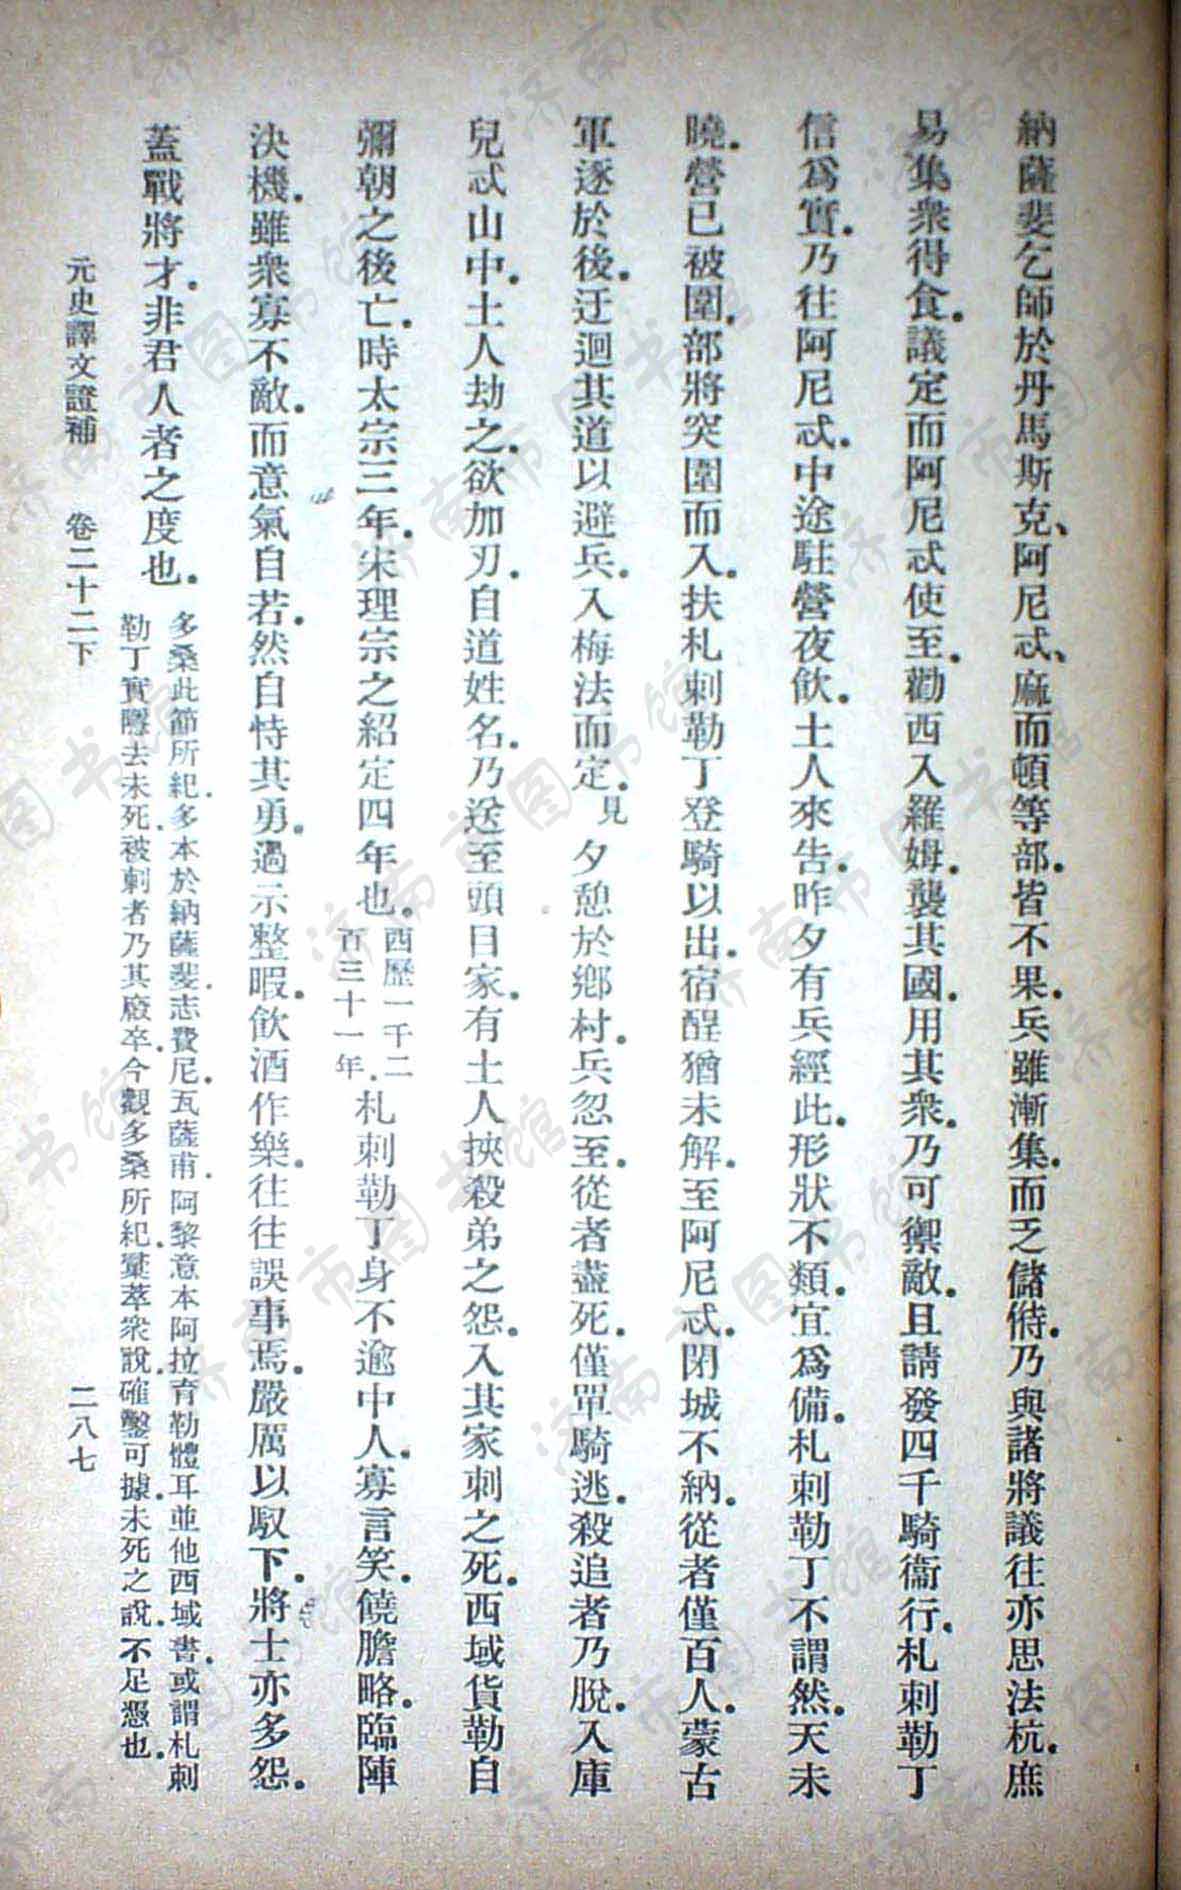 納薩斐乞師於丹馬斯克、阿尼忒、麻而頓等部.皆不果.兵雖漸集.而乏儲偫.乃與諸將議往亦思法杭.庶
易集衆得食.議定而阿尼忒使至.勸西入羅姆.襲其國.用其衆.乃可禦敵.且請發四千騎衞行.札剌勒丁
信爲實.乃往阿尼忒.中途駐營夜飲.土人來告.昨夕有兵經此.形狀不類.宜爲備.札剌勒丁不謂然.天未
曉.營已被圍.部將突圍而入.扶札剌勒丁登騎以出.宿酲猶未解.至阿尼忒.閉城不納.從者僅百人.蒙古
軍逐於後.迂迴其道以避兵.入梅法而定.見 夕憩於鄉村.兵忽至.從者盡死.僅單騎逃.殺追者乃脫.入庫
兒忒山中.土人劫之.欲加刃.自道姓名.乃送至頭目家.有土人挾殺弟之怨.入其家刺之死.西域貨勒自
彌朝之後亡.時太宗三年.宋理宗之紹定四年也.西歷一千二百三十一年.札剌勒丁身不逾中人.寡言笑.饒膽略.臨陣
決機.雖衆寡不敵.而意氣自若.然自恃其勇.過示整暇.飲酒作樂.往往誤事焉.嚴厲以馭下.將士亦多怨.
蓋戰將才.非君人者之度也.
多桑此節所紀.多本於納薩斐志費尼.瓦薩甫.阿黎意本阿拉育勒體耳並他西域書.或謂札剌
勒丁實隱去未死.被剌者乃其廄卒.今觀多桑所紀.彙萃衆說.確鑿可據.未死之說.不足憑也.
元史譯文證補 卷二十二下 二八七
济南市图书馆